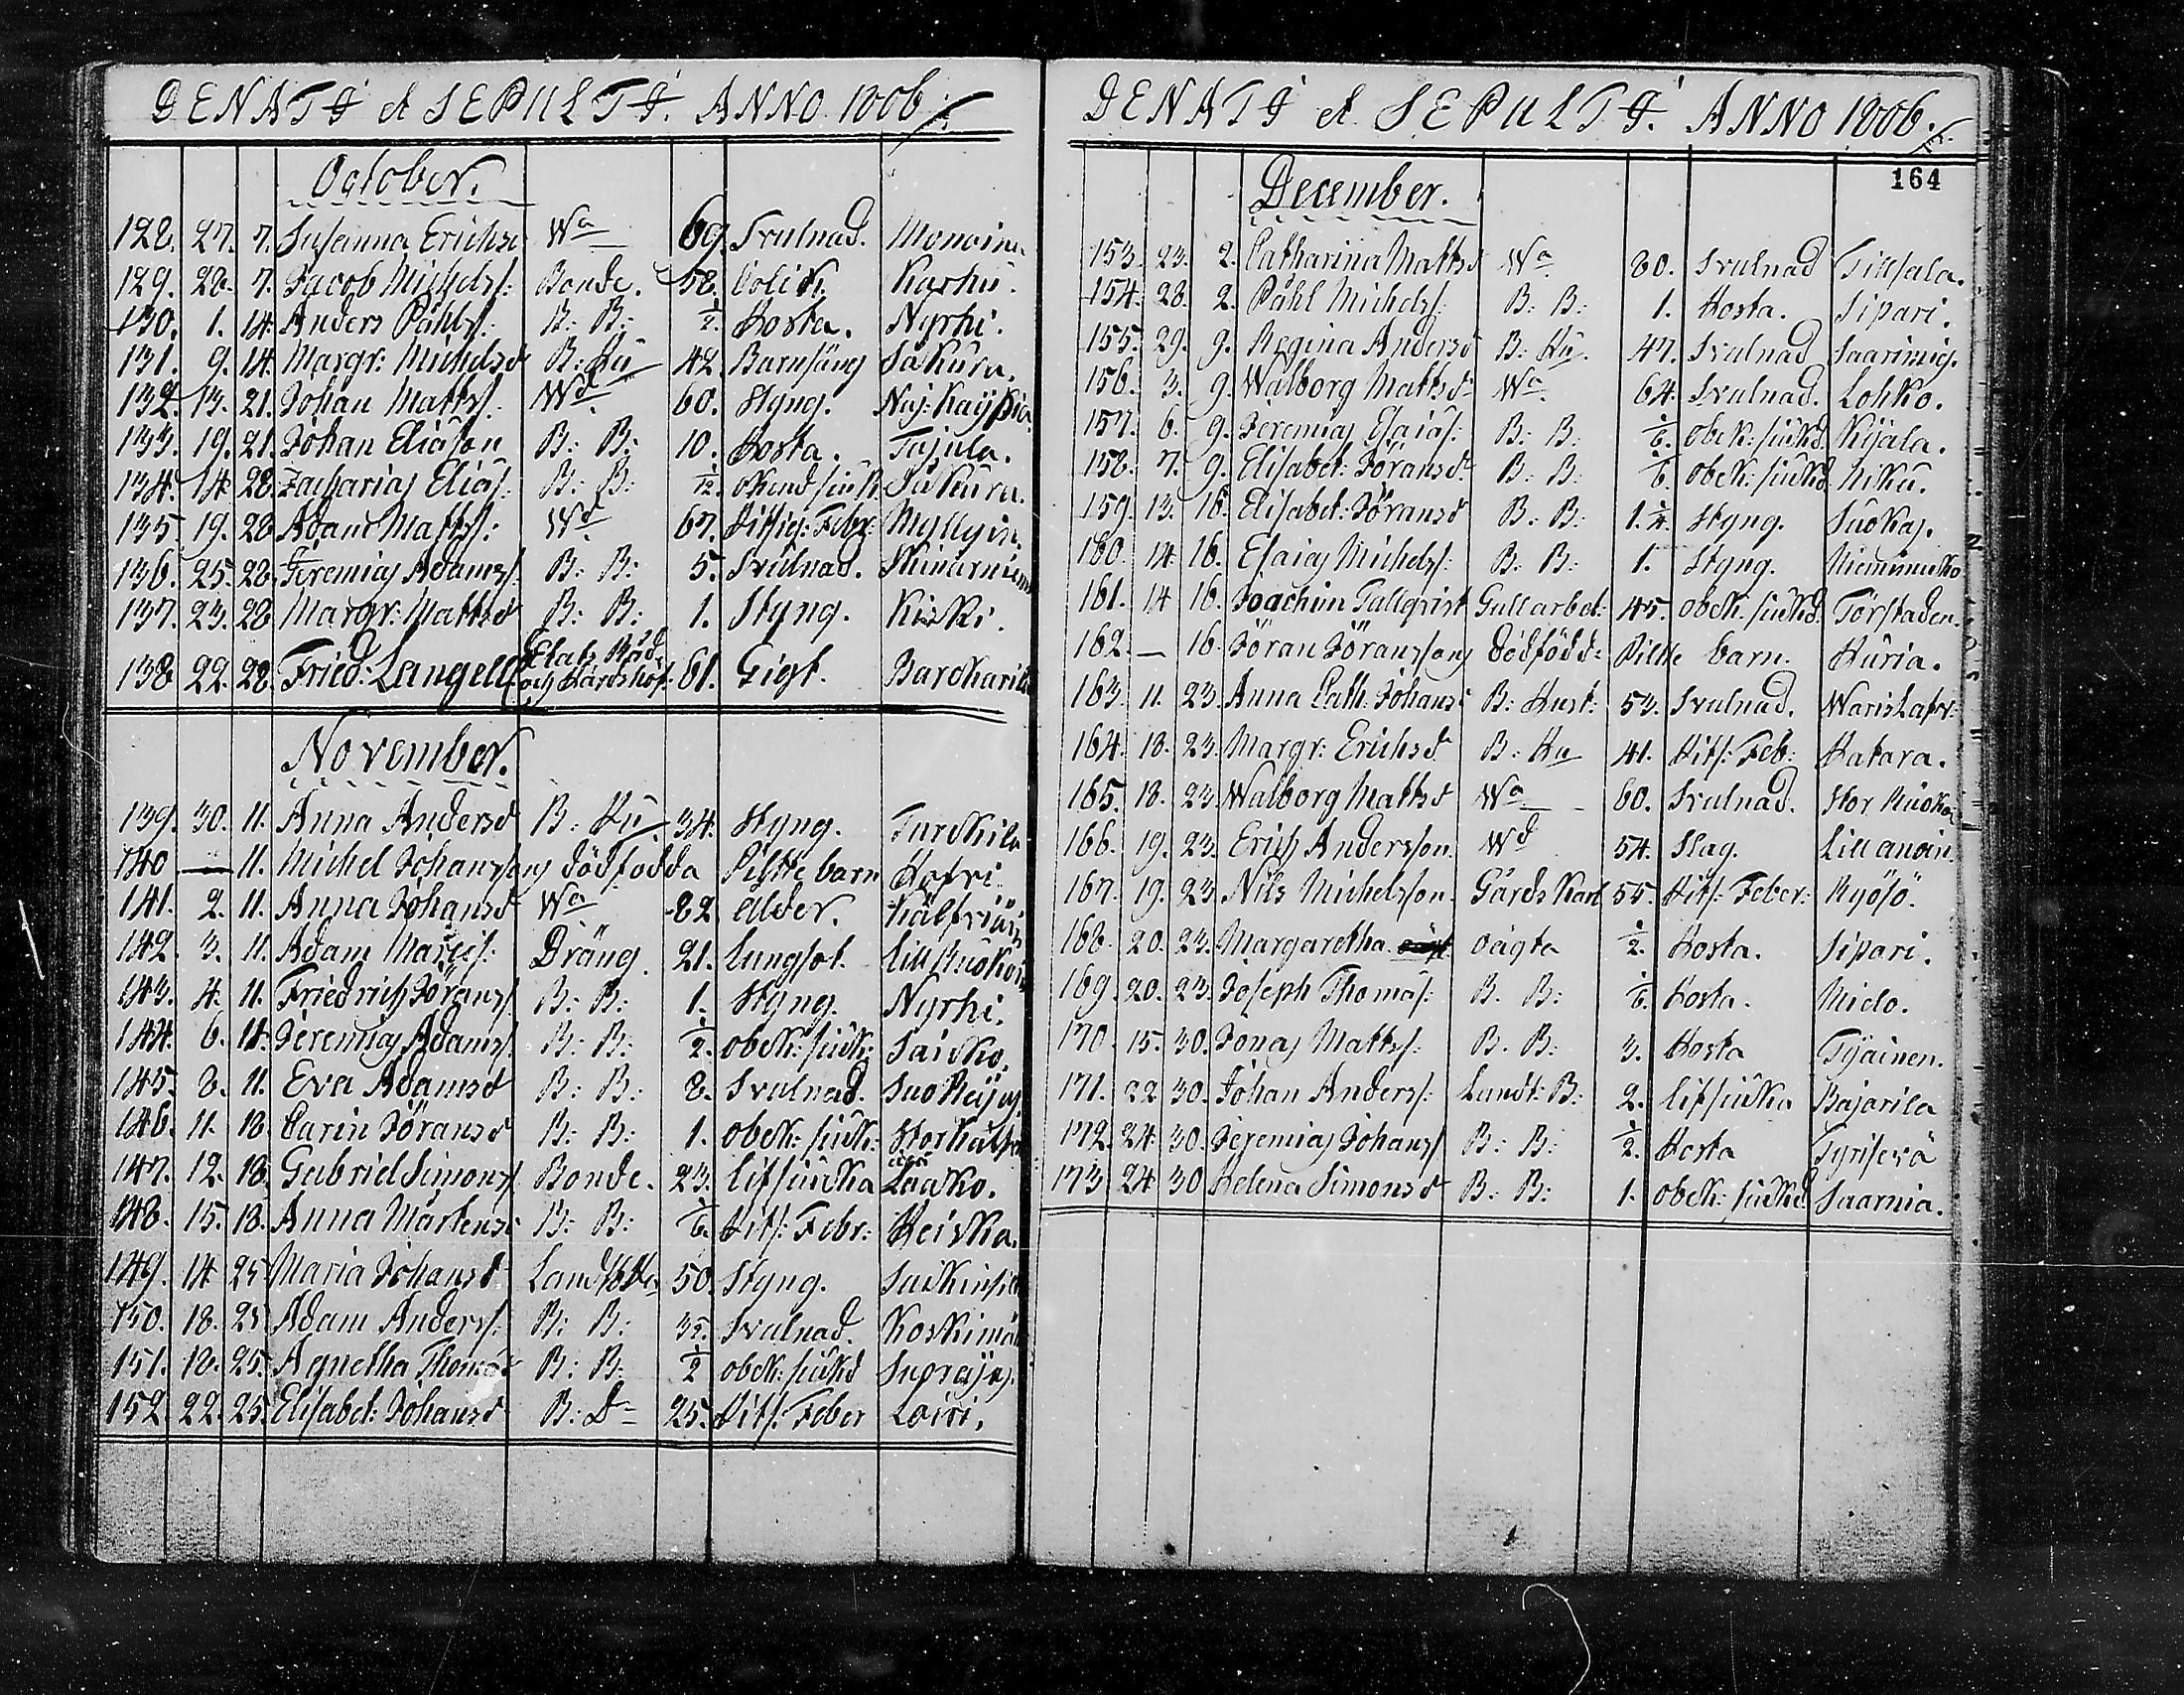 DENATI & SEPULTI. ANNO 1806.
October.
128. 27. 7. Susanna Erichsd Wa 69. Svulnad.
129. 28. 7. Jacob Michelss: Bonde. 58. Colik. Karhu.
130. 1. 14. Anders Påhlss: B: B: 1/2. Hosta. Nyrhi.
131. 9. 14. Margr: Michelsd B: Hu 42. Barnsäng Sakura.
132. 13. 21. Johan Mattss: Wd 60. Styng.
133. 19. 21. Johan Eliasson B: B: 10. Hosta. Tajula.
134. 14 28. Zacharias Eliass: B: B: 1/12. okend siuk Sakura.
135. 19. 28 Adam Mattss: Wd 67. Hitsig: Feber:
136. 25. 28. Jeremias Adamss: B: B: 5. Svulnad.
137. 23. 28 Margr: Mattsd B: B: 1. Styng. Kiski.
138 22. 28. Fried: Langell Etats Råd och Häradshöf: 61. Gigt. Barckarila
November.
139. 30. 11. Anna Andersd B: Hu 34. Styng. Turckila
140 — 11. Michel Johanssons dödfödda Piltte barn
141. 2. 11. Anna Johansd Wa 82 ålder.
142. 3. 11. Adam Dräng. 21. Lungsot.
143. 4. 11. Friedrich Jöranss: B: B: 1. Styng. Nyrhi.
144. 6. 11. Jeremias Adamss: B: B: 1/2. obek: siuk:
145. 8. 11. Eva Adamsd B: B: 8. Svulnad.
146. 11. 18. Carin Jöransd B: B: 1. obek: siuk:
147. 12. 18. Gabriel Simonss Bonde. 23. Lifsiucka Laako.
148. 15. 18. Anna Mårtensd B: B: 1/6. Hits: Febr: Heiska.
149. 14 25 Maria Johansd 50. Styng.
150. 18. 25 Adam Anderss: B: B: Svulnad. Koskimä
151. 18. 25. Agnetha Thomasd B: B: 1/2 obek: siukd
152 22. 25. Elisabet: Johansd B: Dr 25. Hits: Feber Loiri.
DENATI & SEPULTI. ANNO 1806.
164
December.
153. 23. 2. Catharina Mattsd Wa 80. Svulnad
154. 28. 2. Påhl Michelss: B: B: 1. Hosta. Sipari.
155. 29. 9. Regina Andersd B: Hu. 47. Svulnad
156. 3. 9. Walborg Mattsd Wa 64. Svulnad. Lohko.
157. 6. 9. Jeremias Esaiass: B: B: 1/6. obek: siukd. Kijala.
158. 7. 9. Elisabet: Jöransd: B: B: 1/6. obek: siukd Niku.
159. 13. 16. Elisabet: Jöransd B: B: 1. 1/4. Styng. Suokas.
160. 14 16. Esaias Michelss: B: B: 1. Styng.
161. 14 16. Joachim Tallqvist 45. obek. siukd.
162. — 16. Jöran Jöranssons dödfödd: Piltte barn. Huria.
163. 11. 23. Anna Cath: Johansd B: Hust: 53. Svulnad.
164. 18. 23. Margr: Erichsd B: Hu 41. Hits: Feb: Hatara.
165. 18. 23 Walborg Mattsd Wa 60. Svulnad.
166. 19. 23. Erich Andersson. Wd 54. Slag.
167. 19. 23. Nils Michelsson. Gårds Karl 55. Hits: Feber: Ryösö.
168. 20. 23. Margaretha. oägta 1/2. Hosta. Sipari.
169. 20. 23. Joseph Thomass: B. B: 1/6. Hosta. Mielo.
170. 15. 30. Jonas Mattss: B. B: 3. Hosta Tyäinen.
171. 22 30. Johan Anderss: Landt: B: 2. Lifsiucka Bajarila
172. 24. 30. Jeremias Johanss B: B: 1/2. Hosta Tyrisevä
173 24 30 Helena Simonsd B: B: 1. obek: siukd: Saarnia.